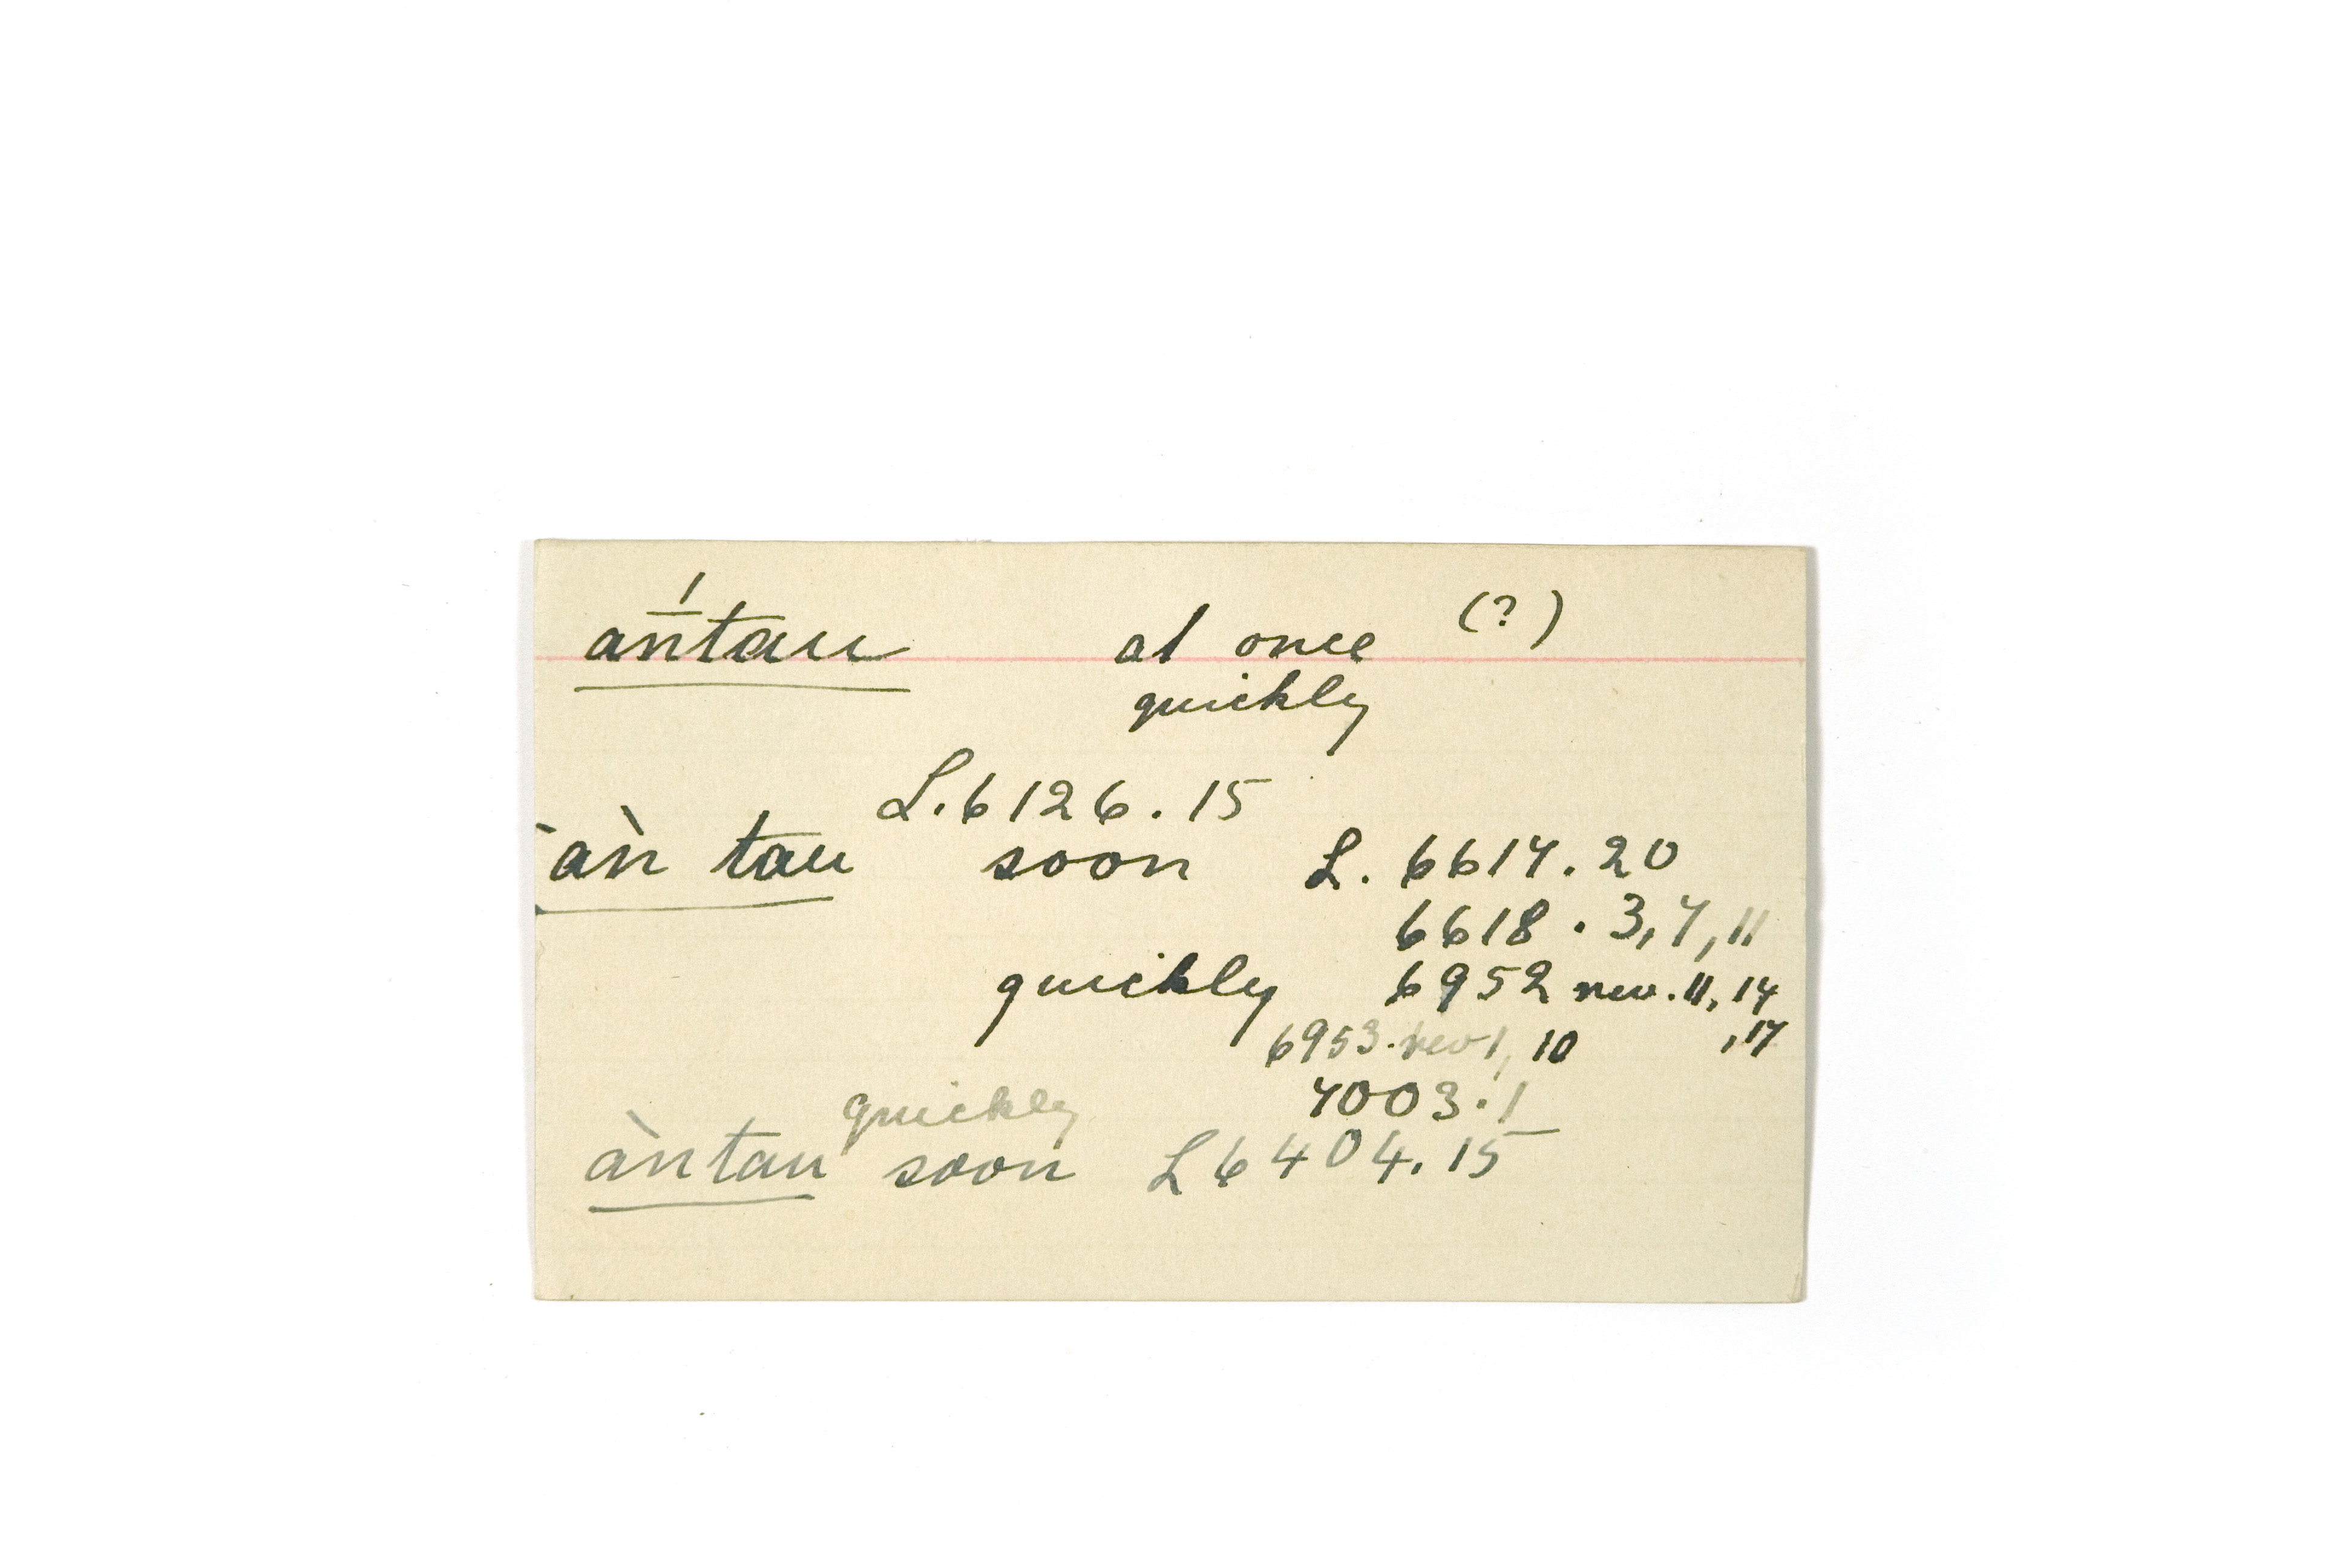 ā́ntau at once (?)
quickly
L. 6126. 15
ˋàn tau soon L. 6617. 20
6618 . 3, 7, 11
quickly 6952 rev. 11, 14
6953. rev 1, 10 , 17
quickly 7003. 1
àntau soon L 6404. 15